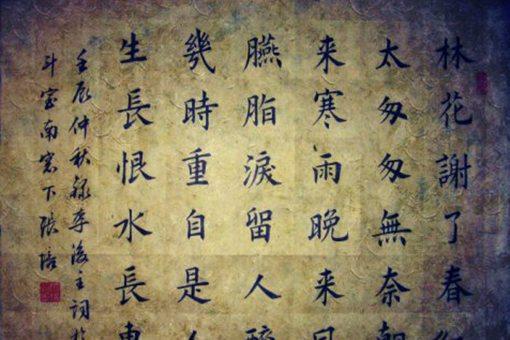 林花謝了春
太匆匆無奈朝
来寒雨晚来风
臙脂淚留人醉
幾時重自是人
生長恨水長東
壬辰仲秋録李後主詞於
斗室南窓下